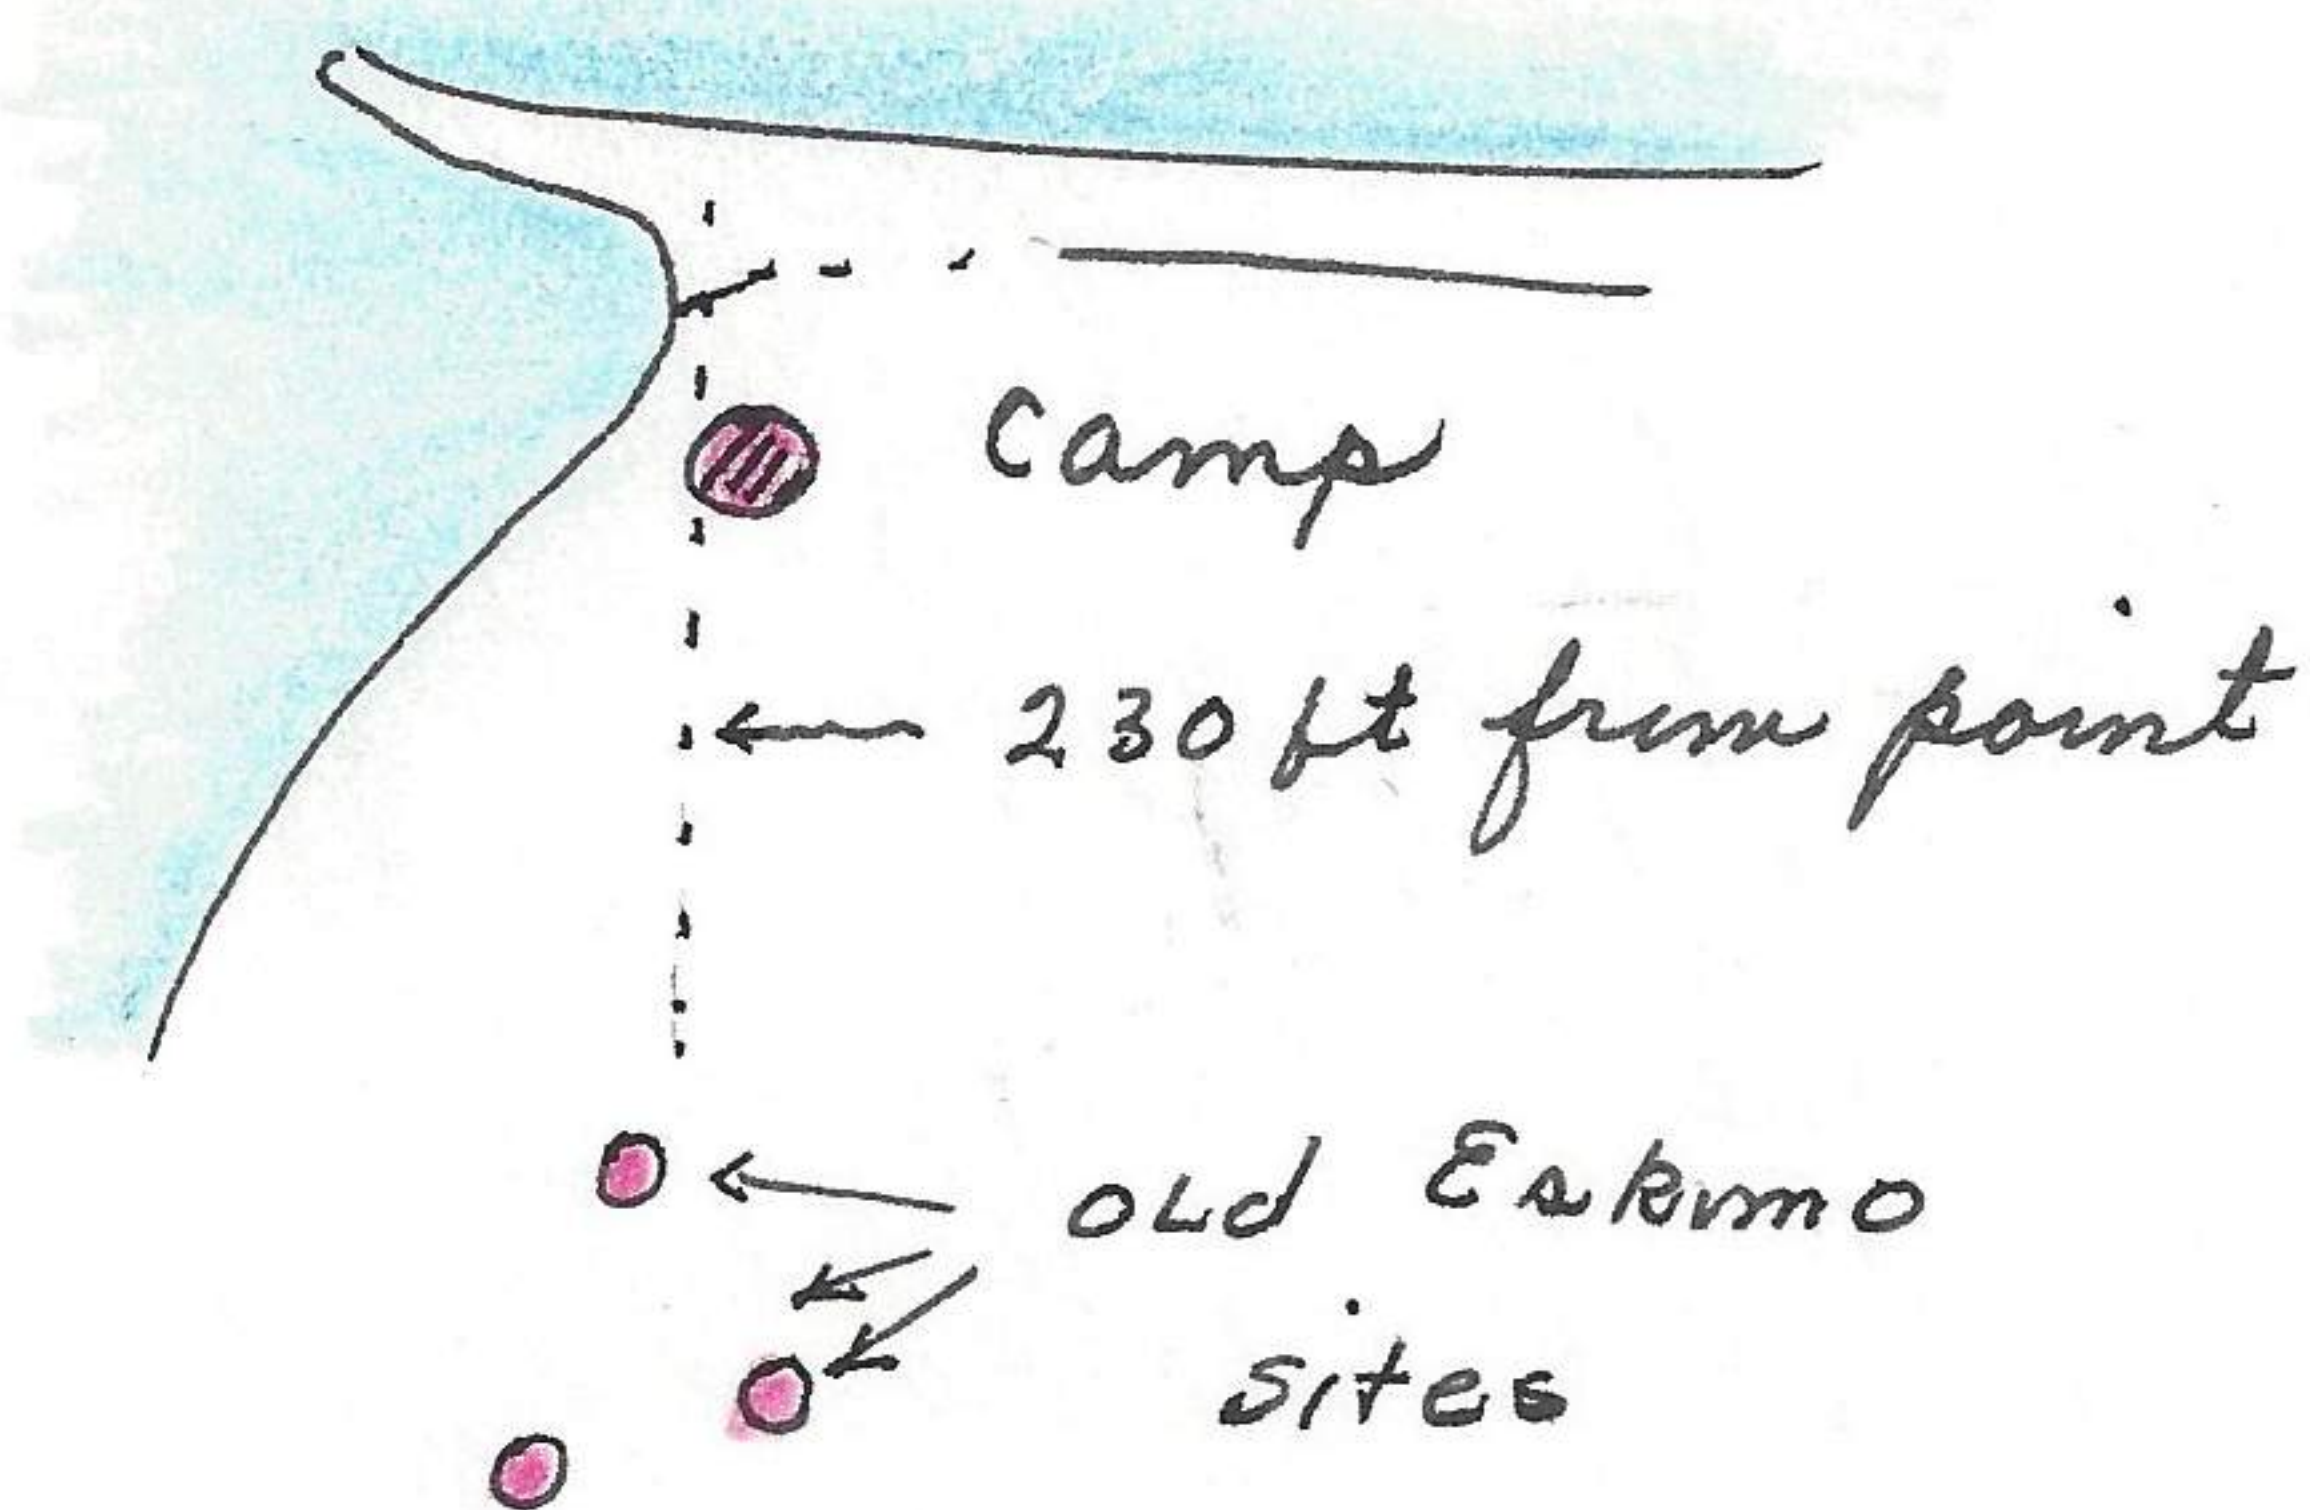 Camp
230 ft from point
old Eskimo
sites